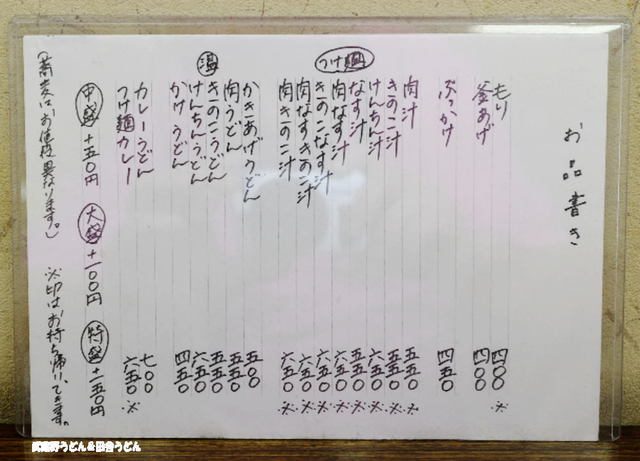 お品書き
もり 四〇〇 ※
釜あげ 四〇〇
ぶっかけ 四五〇
つけ麺
肉汁 五五〇 ※
きのこ汁 五五〇 ※
けんちん汁 六五〇 ※
なす汁 五五〇 ※
肉なす汁 六五〇 ※
きのこなす汁 六五〇 ※
肉なすきのこ汁 六五〇 ※
肉きのこ汁 六五〇 ※
温
かきあげうどん 五〇〇
肉うどん 五五〇
きのこうどん 五五〇
けんちんうどん 六五〇
かけうどん 四五〇
カレーうどん 七〇〇
つけ麺カレー 六五〇 ※
中盛 +五〇円 大盛 +一〇〇円 特盛 +一五〇円
(蕎麦はお値段異なります。) ※印はお持ち帰りできます。
武蔵野うどん&田舎うどん